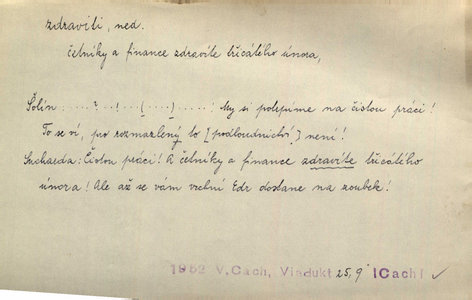 zdraviti, ned.
četníky a finance zdravíte třicátého února,
Šolín ..... ? ... ! ... ( ..... ) ..... ! My si potrpíme na čistou práci!
To se ví, pro rozmazlený to [podloudnictví] není!
Suchaeda: Čistou práci! A četníky a finance zdravíte třicátého
února! Ale až se vám vrchní Edr dostane na zoubek!
1952 V.Cach, Viadukt 25,9 |Cach|